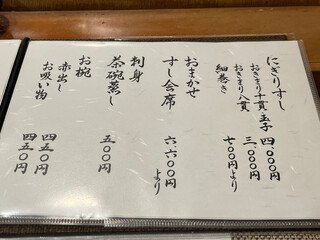 にぎりすし
おきまり十貫、玉子 四、〇〇〇円
おきまり八貫 三、〇〇〇円
細巻き 七〇〇円より
おまかせ
すし会席 六、六〇〇円より
刺身
茶碗蒸し 五〇〇円
お椀
赤出し 四五〇円
お吸い物 四五〇円